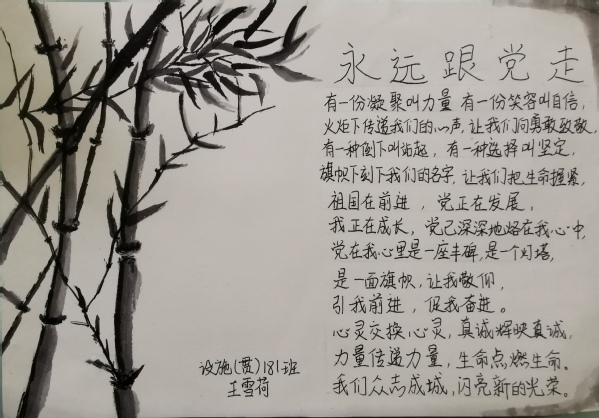 永远跟党走
有一份凝聚叫力量 有一份笑容叫自信,
火炬下传递我们的心声,让我们向勇敢致敬,
有一种倒下叫站起,有一种选择叫坚定,
旗帜下刻下我们的名字,让我们把生命握紧,
祖国在前进,党正在发展,
我正在成长,党已深深地烙在我心中,
党在我心里是一座丰碑,是一个灯塔,
是一面旗帜,让我敬仰,
引我前进,促我奋进。
心灵交换心灵,真诚辉映真诚,
力量传递力量,生命点燃生命。
我们众志成城,闪亮新的光荣。
设施(贯)181班
王雪荷